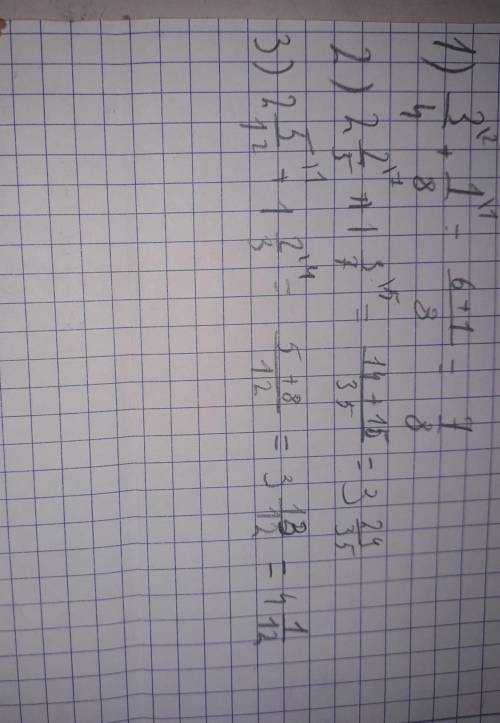 1) 3/4\2 + 1/8\1 = 6+1/8 = 7/8
2) 2 2/5\7 + 1 3/7\5 = 14+15/35 = 3 29/35
3) 2 5/12\1 + 1 2/3\4 = 5+8/12 = 3 13/12 = 4 1/12